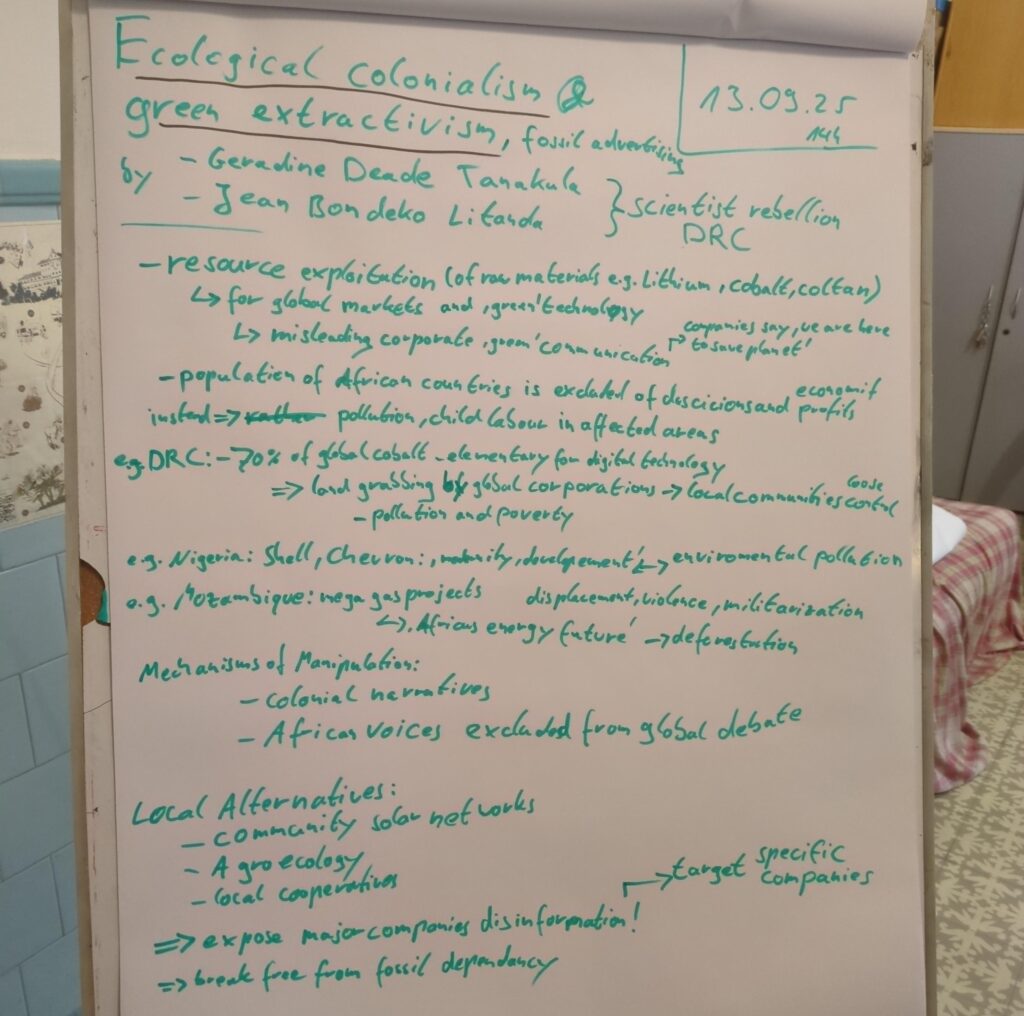 Ecological colonialism &
green extractivism, fossil advertising
13.09.25
14h
by - Geradine Deade Tanakula
- Jean Bondeko Litanda
} scientist rebellion
DRC
- resource exploitation (of raw materials e.g. Lithium, cobalt, coltan)
↳ for global markets and ,green' technology
↳ misleading corporate ,green' communication
↱ companies say ,we are here
to save planet'
- population of African countries is excluded of descicions and economic
profits
instead => pollution, child labour in affected areas
e.g. DRC: - 70% of global cobalt - elementary for digital technology
=> land grabbing by global corporations -> local communities loose
control
- pollution and poverty
e.g. Nigeria: Shell, Chevron: ,developement' <-> enviromental pollution
e.g. Mozambique: mega gas projects displacement, violence, militarization
↳ ,Africas energy future' -> deforestation
Mechanisms of Manipulation:
- colonial narratives
- African voices excluded from global debate
Local Alternatives:
- community solar networks
- Agroecology
- local cooperatives
=> expose major companies disinformation!
↱ target specific
companies
=> break free from fossil dependancy